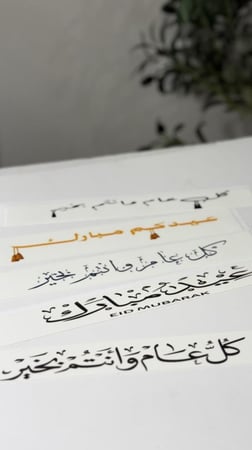 كل عام وانتم بخير
عيدكم مبارك
كل عام وأنتم بخير
عيد مبارك
EID MUBARAK
كل عام وأنتم بخير